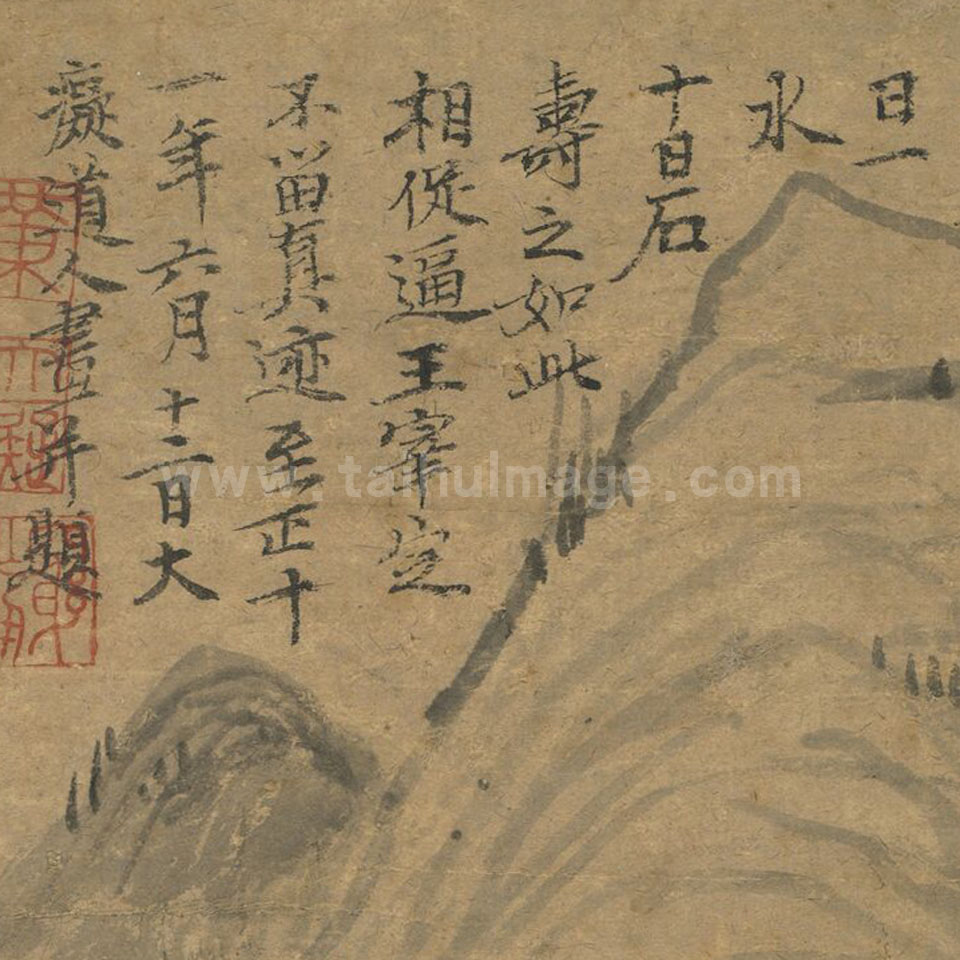 日一
水
十日石
壽之如此
相促逼王宰定
不留真迹至正十
一年六月十二日大
癡道人畫并題
www.taihuImage.com